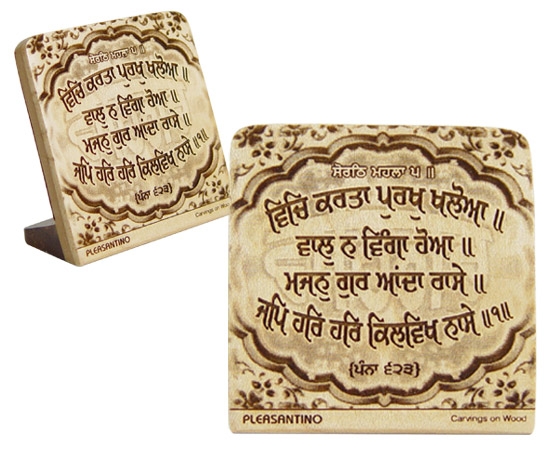 ਸੋਰਠਿ ਮਹਲਾ ੫ ॥
ਵਿਚਿ ਕਰਤਾ ਪੁਰਖੁ ਖਲੋਆ ॥
ਵਾਲੁ ਨ ਵਿੰਗਾ ਹੋਆ ॥
ਮਜਨੁ ਗੁਰ ਆਂਦਾ ਰਾਸੇ ॥
ਜਪਿ ਹਰਿ ਹਰਿ ਕਿਲਵਿਖ ਨਾਸੇ ॥੧॥
{ਪੰਨਾ ੬੨੩}
PLEASANTINO
Carvings on Wood
ਸੋਰਠਿ ਮਹਲਾ ੫ ॥
ਵਿਚਿ ਕਰਤਾ ਪੁਰਖੁ ਖਲੋਆ ॥
ਵਾਲੁ ਨ ਵਿੰਗਾ ਹੋਆ ॥
ਮਜਨੁ ਗੁਰ ਆਂਦਾ ਰਾਸੇ ॥
ਜਪਿ ਹਰਿ ਹਰਿ ਕਿਲਵਿਖ ਨਾਸੇ ॥੧॥
{ਪੰਨਾ ੬੨੩}
PLEASANTINO Carvings on Wood